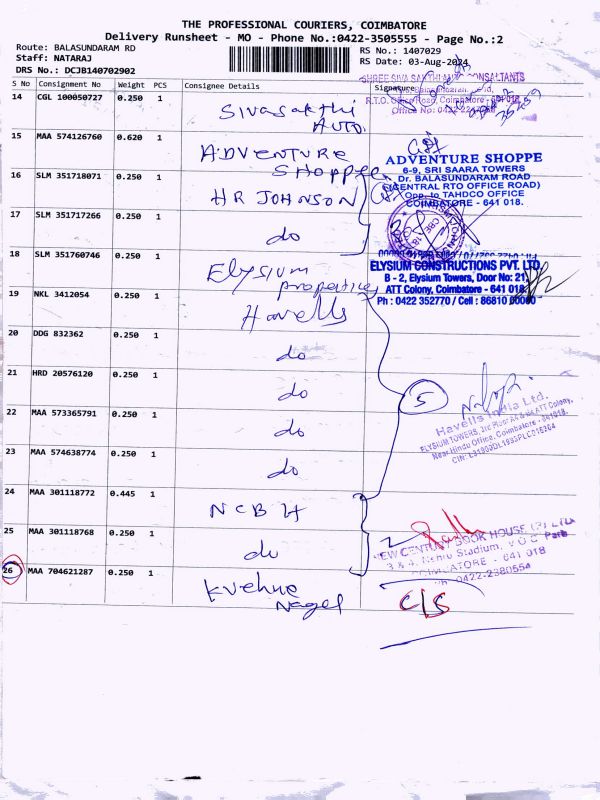 THE PROFESSIONAL COURIERS, COIMBATORE
Delivery Runsheet - MO - Phone No.:0422-3505555 - Page No.:2
Route: BALASUNDARAM RD
RS No.: 1407029
Staff: NATARAJ
RS Date: 03-Aug-2024
DRS No.: DCJB140702902
S No Consignment No Weight PCS Consignee Details Signature
14 CGL 100050727 0.250 1 Sivasakthi AUTO.
15 MAA 574126760 0.620 1 ADVENTURE SHOPPEE
ADVENTURE SHOPPE
6-9, SRI SAARA TOWERS
Dr. BALASUNDARAM ROAD
(CENTRAL RTO OFFICE ROAD)
Opp. to TAHDCO OFFICE
COIMBATORE - 641 018.
16 SLM 351718071 0.250 1 HR JOHNSON
17 SLM 351717266 0.250 1 do
18 SLM 351760746 0.250 1 Elysium properties
ELYSIUM CONSTRUCTIONS PVT. LTD.
B - 2, Elysium Towers, Door No: 21,
ATT Colony, Coimbatore - 641 018.
Ph : 0422 352770 / Cell : 86810 00000
19 NKL 3412054 0.250 1 Havells
20 DDG 832362 0.250 1 do
21 HRD 20576120 0.250 1 do
22 MAA 573365791 0.250 1 do
5
Havells India Ltd.
23 MAA 574638774 0.250 1 do
24 MAA 301118772 0.445 1 NCBH
25 MAA 301118768 0.250 1 do
2
NEW CENTURY BOOK HOUSE (P) LTD
26 MAA 704621287 0.250 1 Kuehne Nagel
C/S